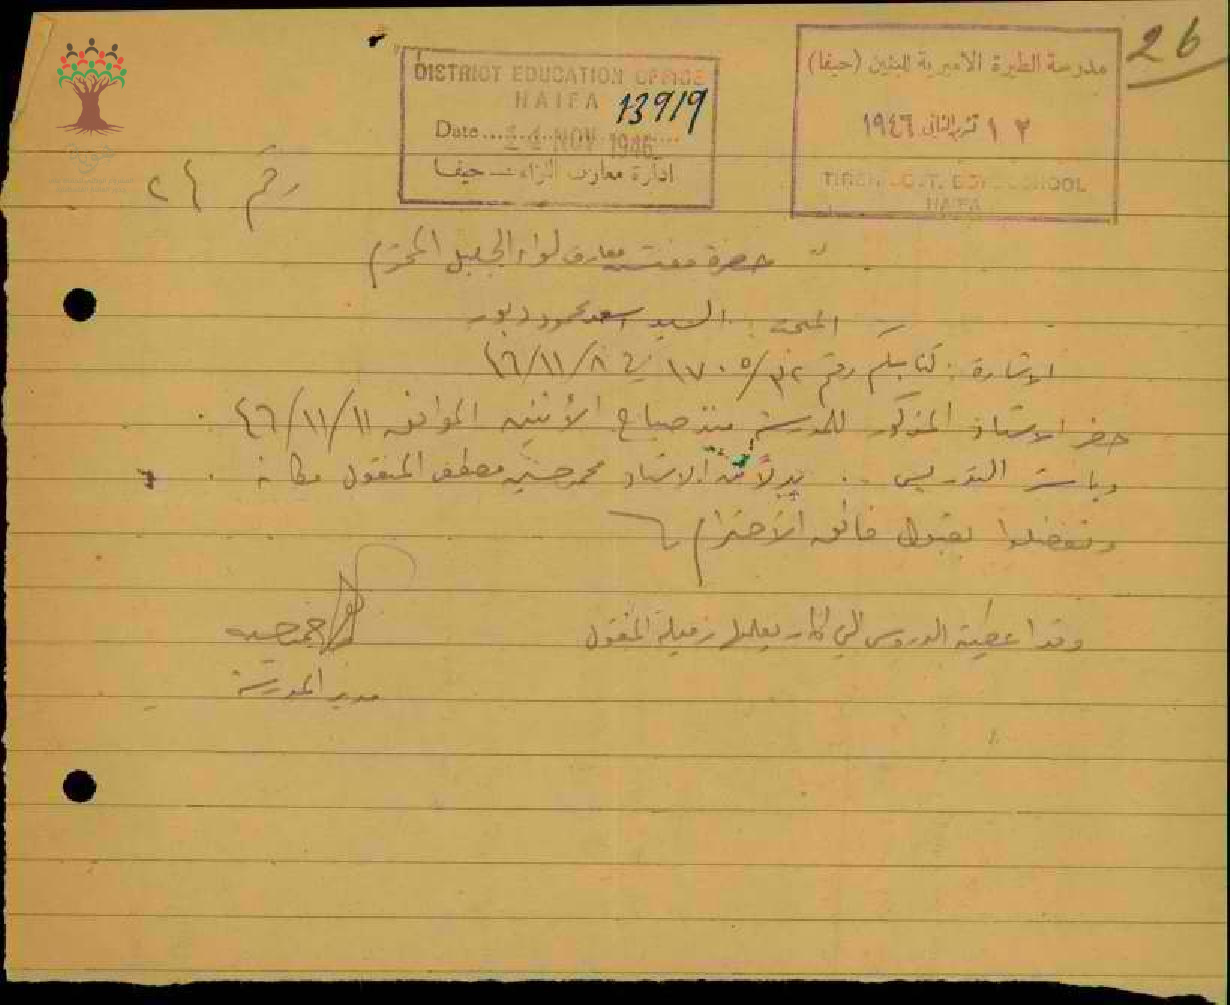 26
مدرسة الطيرة الأميرية للبنين (حيفا)
١٢ تشرين الثاني ١٩٤٦
TIREH GOVT. BOYS SCHOOL
HAIFA
DISTRICT EDUCATION OFFICE
HAIFA
13919
Date 14 NOV 1946
ادارة معارف اللواء حيفا
رقم ٢٤
حضرة مفتش معارف لواء الجليل المحترم
السيد اسعد محمود دبور
الاشارة : كتابكم رقم في ٤٦/١١/٨
حضر الاستاذ المذكور للمدرسة منذ صباح الأثنين الموافق ٤٦/١١/١١
وباشر التدريس .. بدلاً من الاستاذ محمد حسين مصطفى المنقول مكانه .
وتفضلوا بقبول فائق الأحترام
وقد اعطيته الدروس التي كان يعلمها زميله المنقول
مدير المدرسة